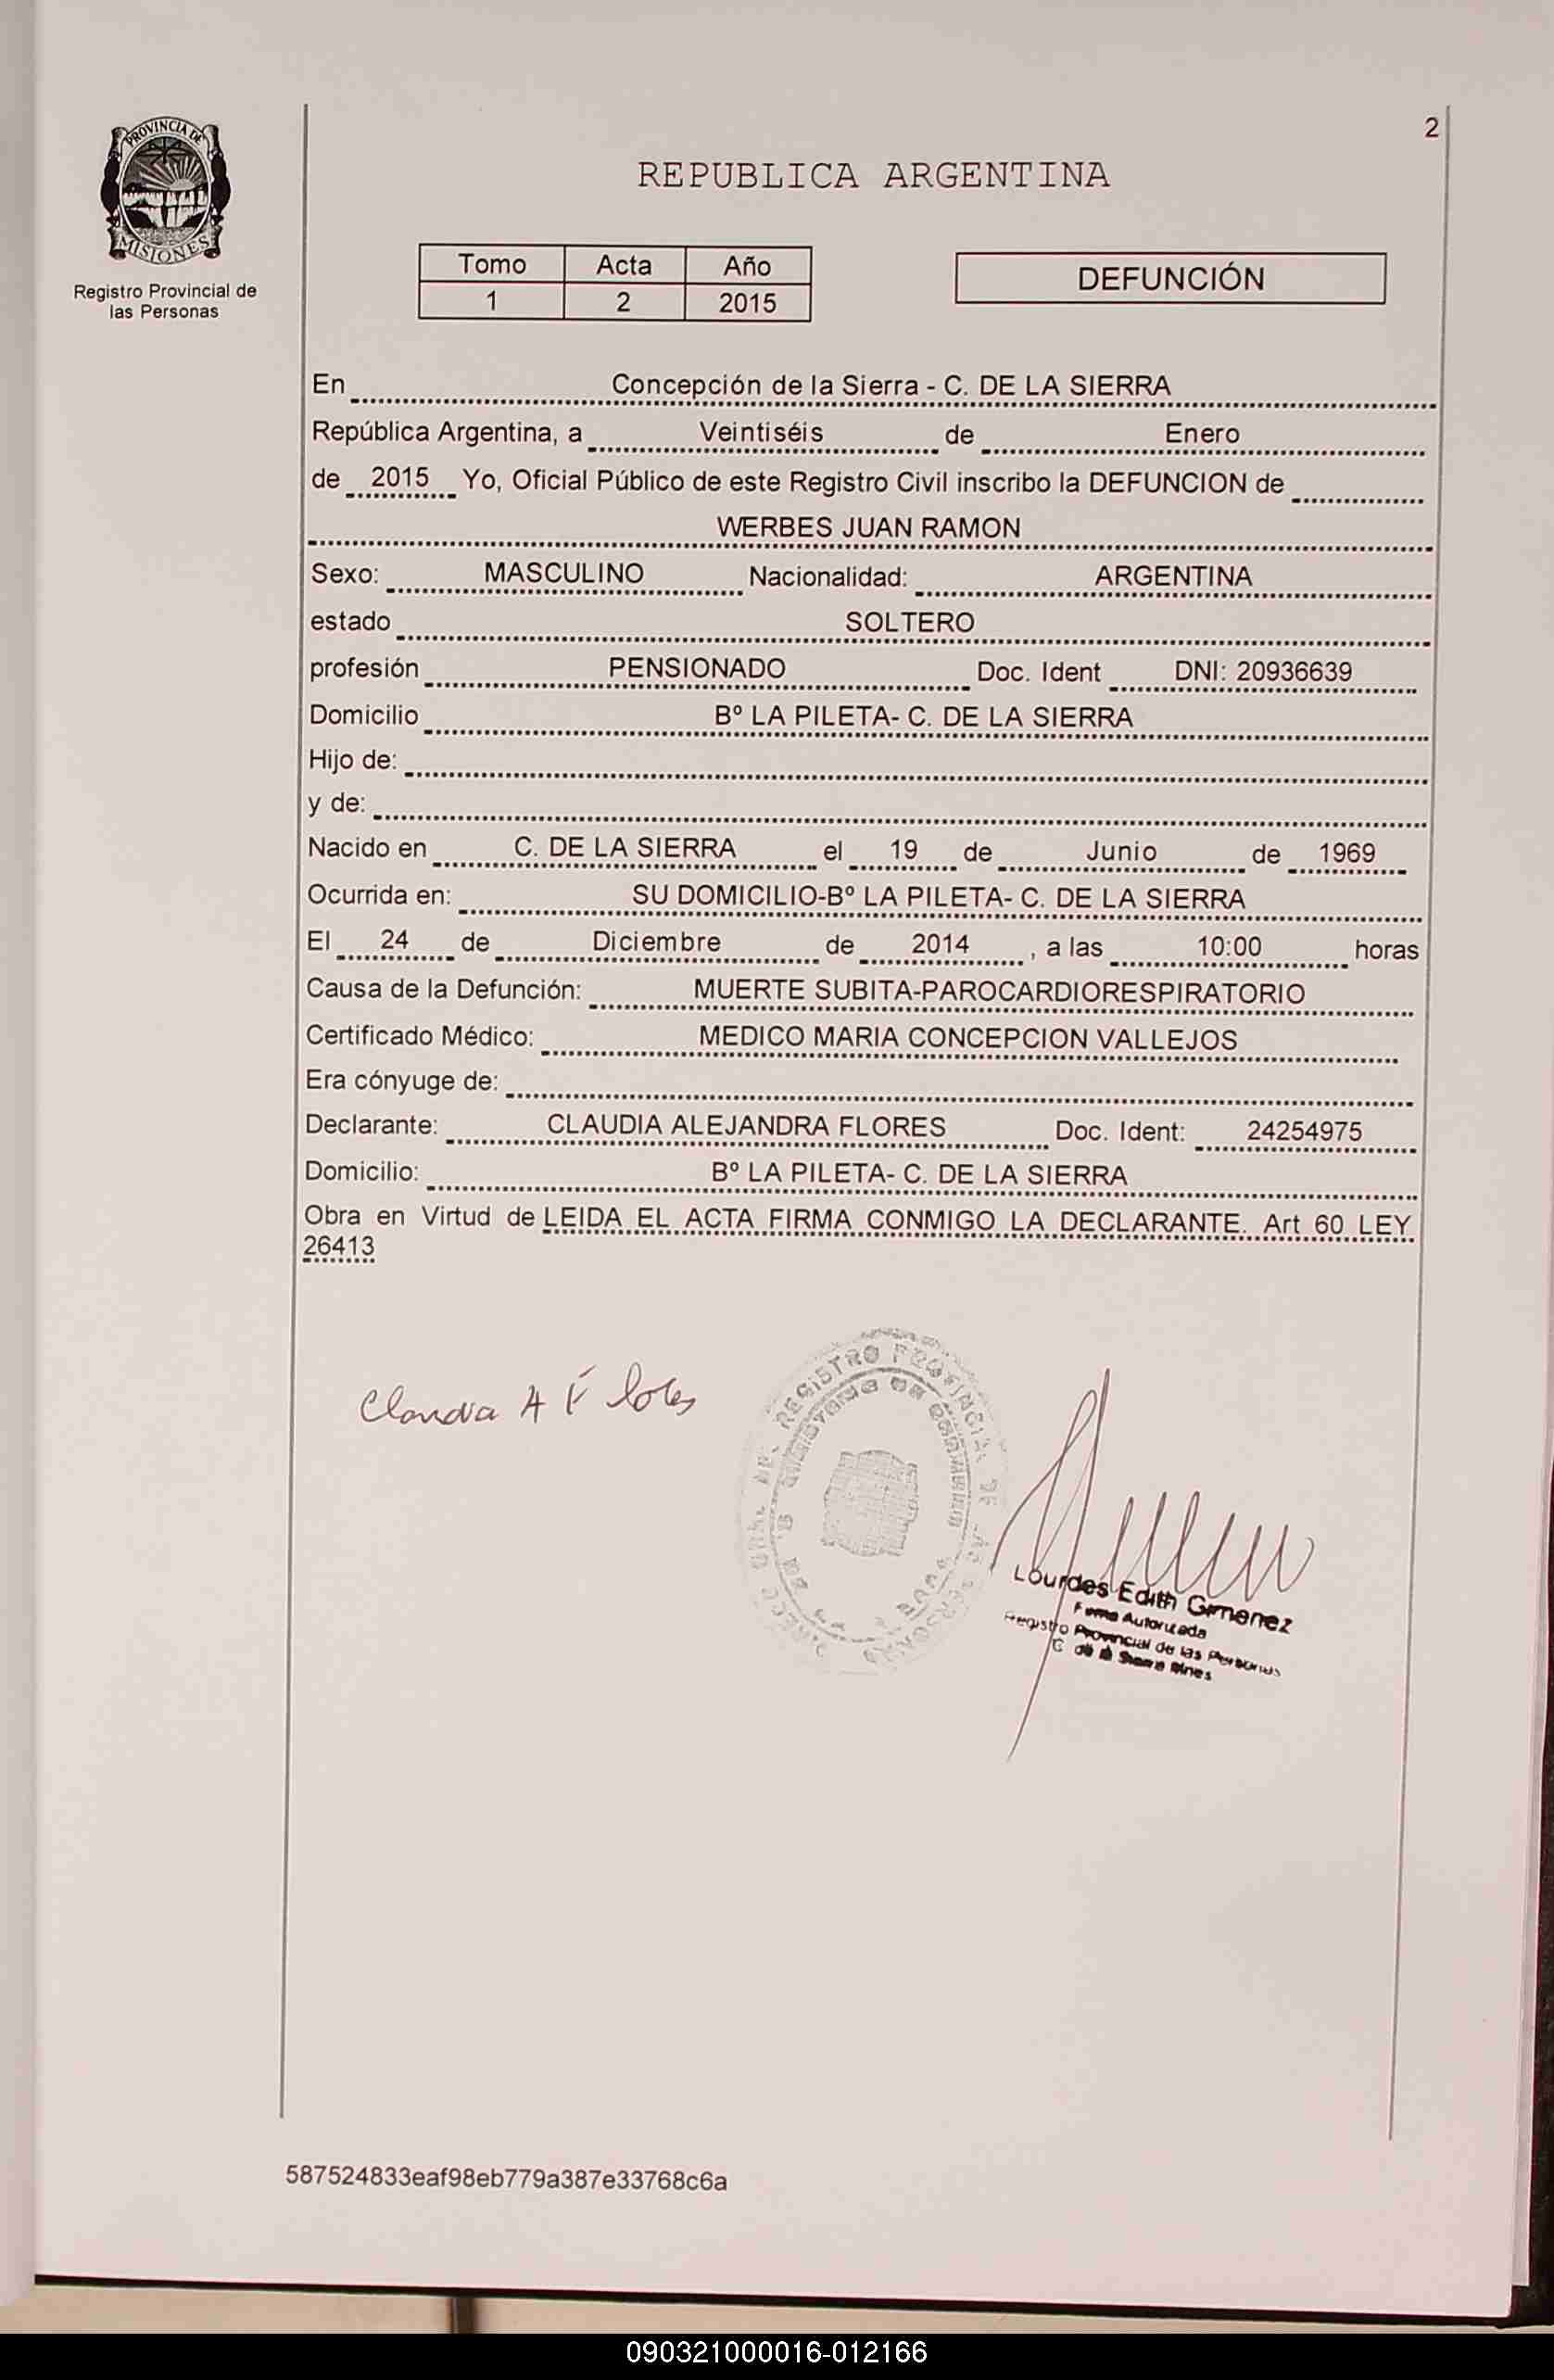 2
PROVINCIA DE
MISIONES
Registro Provincial de
las Personas
REPUBLICA ARGENTINA
Tomo Acta Año
1 2 2015
DEFUNCIÓN
En Concepción de la Sierra - C. DE LA SIERRA
República Argentina, a Veintiséis de Enero
de 2015 Yo, Oficial Público de este Registro Civil inscribo la DEFUNCION de
WERBES JUAN RAMON
Sexo: MASCULINO Nacionalidad: ARGENTINA
estado SOLTERO
profesión PENSIONADO Doc. Ident DNI: 20936639
Domicilio Bº LA PILETA- C. DE LA SIERRA
Hijo de:
y de:
Nacido en C. DE LA SIERRA el 19 de Junio de 1969
Ocurrida en: SU DOMICILIO-Bº LA PILETA- C. DE LA SIERRA
El 24 de Diciembre de 2014 , a las 10:00 horas
Causa de la Defunción: MUERTE SUBITA-PAROCARDIORESPIRATORIO
Certificado Médico: MEDICO MARIA CONCEPCION VALLEJOS
Era cónyuge de:
Declarante: CLAUDIA ALEJANDRA FLORES Doc. Ident: 24254975
Domicilio: Bº LA PILETA- C. DE LA SIERRA
Obra en Virtud de LEIDA EL ACTA FIRMA CONMIGO LA DECLARANTE. Art 60 LEY
26413
Claudia A Flores
REGISTRO PROVINCIAL DE
Lourdes Edith Gimenez
Firma Autorizada
Registro Provincial de las Personas
C de la Sierra Mnes
587524833eaf98eb779a387e33768c6a
090321000016-012166